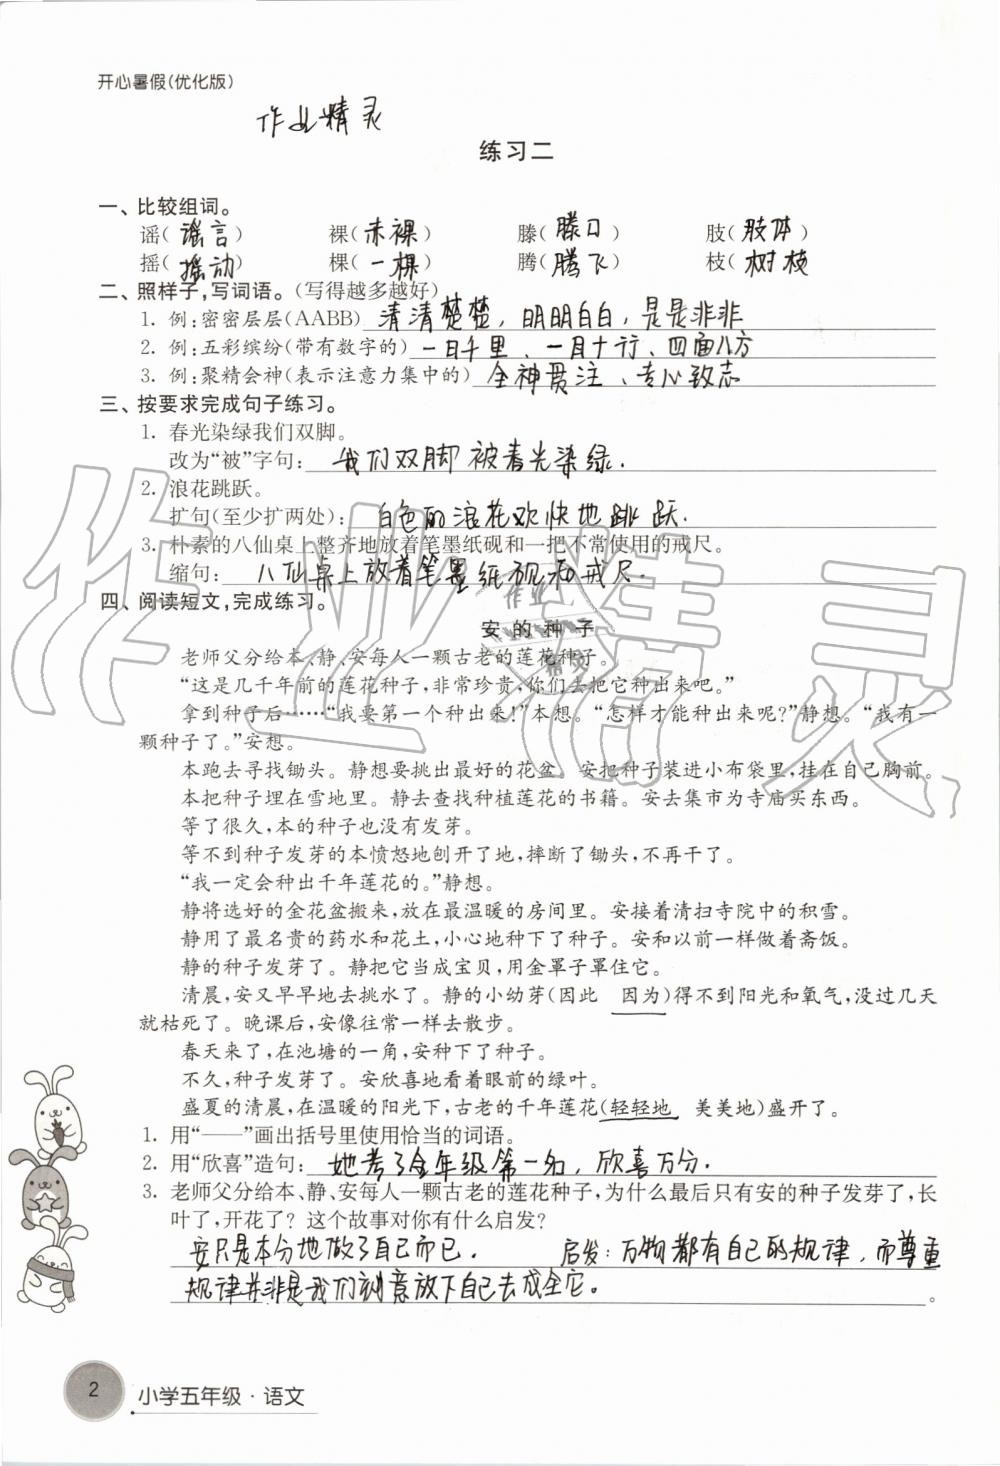 开心暑假(优化版)
作业精灵
练习二
一、比较组词。
谣(谣言) 裸(赤裸) 滕(滕口) 肢(肢体)
摇(摇动) 棵(一棵) 腾(腾飞) 枝(树枝)
二、照样子,写词语。(写得越多越好)
1. 例:密密层层(AABB) 清清楚楚,明明白白,是是非非
2. 例:五彩缤纷(带有数字的) 一日千里、一目十行、四面八方
3. 例:聚精会神(表示注意力集中的) 全神贯注、专心致志
三、按要求完成句子练习。
1. 春光染绿我们双脚。
改为“被”字句: 我们双脚被春光染绿.
2. 浪花跳跃。
扩句(至少扩两处): 白色的浪花欢快地跳跃.
3. 朴素的八仙桌上整齐地放着笔墨纸砚和一把不常使用的戒尺。
缩句: 八仙桌上放着笔墨纸砚和戒尺.
四、阅读短文,完成练习。
安的种子
老师父分给本、静、安每人一颗古老的莲花种子。
“这是几千年前的莲花种子,非常珍贵,你们去把它种出来吧。”
拿到种子后……“我要第一个种出来!”本想。“怎样才能种出来呢?”静想。“我有一
颗种子了。”安想。
本跑去寻找锄头。静想要挑出最好的花盆。安把种子装进小布袋里,挂在自己胸前。
本把种子埋在雪地里。静去查找种植莲花的书籍。安去集市为寺庙买东西。
等了很久,本的种子也没有发芽。
等不到种子发芽的本愤怒地刨开了地,摔断了锄头,不再干了。
“我一定会种出千年莲花的。”静想。
静将选好的金花盆搬来,放在最温暖的房间里。安接着清扫寺院中的积雪。
静用了最名贵的药水和花土,小心地种下了种子。安和以前一样做着斋饭。
静的种子发芽了。静把它当成宝贝,用金罩子罩住它。
清晨,安又早早地去挑水了。静的小幼芽(因此 因为)得不到阳光和氧气,没过几天
就枯死了。晚课后,安像往常一样去散步。
春天来了,在池塘的一角,安种下了种子。
不久,种子发芽了。安欣喜地看着眼前的绿叶。
盛夏的清晨,在温暖的阳光下,古老的千年莲花(轻轻地 美美地)盛开了。
1. 用“——”画出括号里使用恰当的词语。
2. 用“欣喜”造句: 她考了全年级第一名,欣喜万分.
3. 老师父分给本、静、安每人一颗古老的莲花种子,为什么最后只有安的种子发芽了,长
叶了,开花了?这个故事对你有什么启发?
安只是本分地做了自己而已. 启发:万物都有自己的规律,而尊重
规律并非是我们刻意放下自己去成全它。
。
2 小学五年级·语文